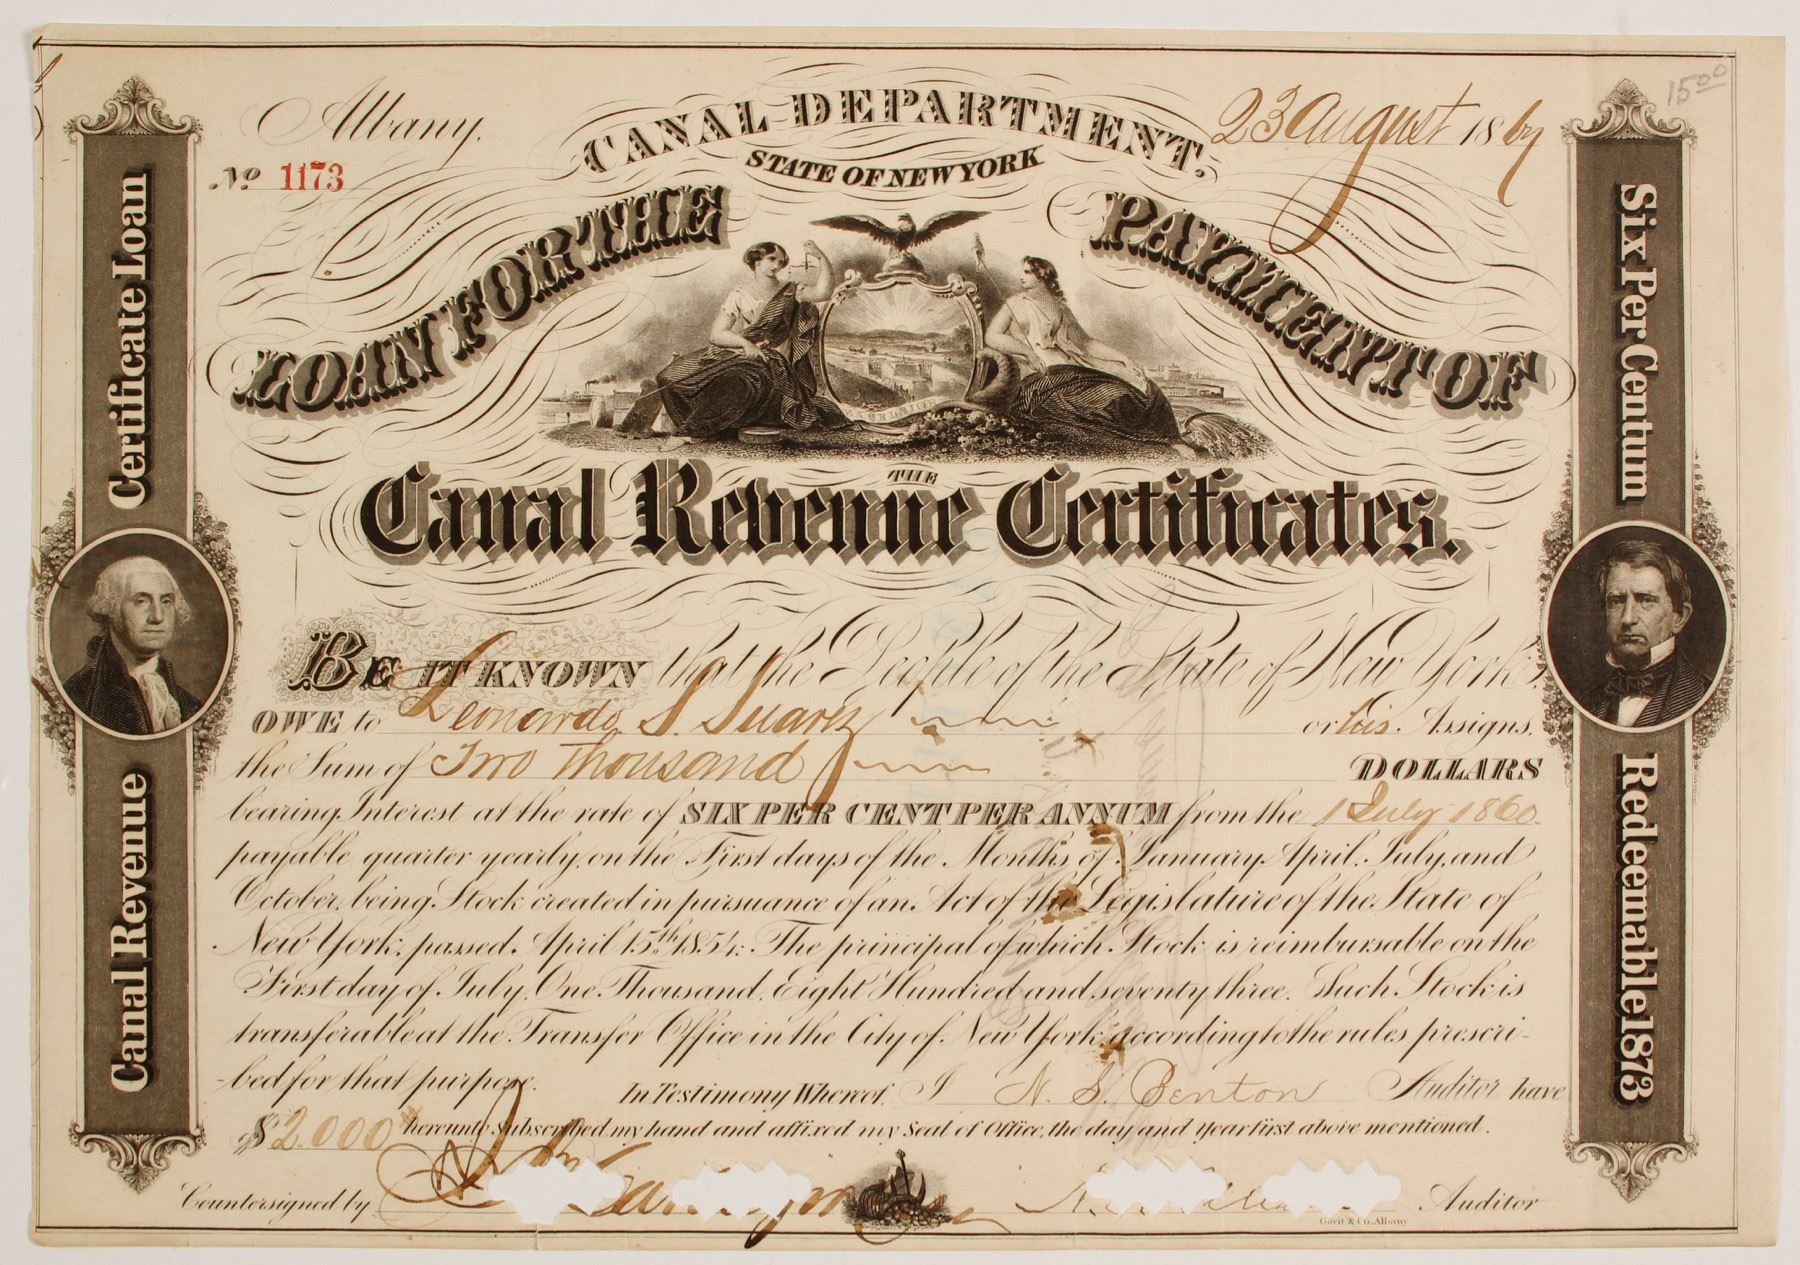 15.00
Albany.
23 August 1867
CANAL DEPARTMENT.
STATE OF NEW YORK
No 1173
LOAN FOR THE
PAYMENT OF
THE
Canal Revenue Certificates.
BE IT KNOWN that the People of the State of New York,
OWE to Leonardo S. Suarez or his Assigns,
the Sum of Two Thousand DOLLARS
bearing Interest at the rate of SIX PER CENT PER ANNUM from the 1 July 1860.
payable quarter yearly, on the First days of the Months of January, April, July, and
October, being Stock created in pursuance of an Act of the Legislature of the State of
New York, passed, April 15th 1854: The principal of which Stock is reimbursable on the
First day of July, One Thousand, Eight Hundred and seventy three. Such Stock is
transferable at the Transfer Office in the City of New York, according to the rules prescri-
-bed for that purpose. In Testimony Whereof, I N. S. Benton Auditor have
$ 2.000 hereunto subscribed my hand and affixed my Seal of Office, the day and year first above mentioned.
Countersigned by
Auditor
Gavit & Co. Albany
Canal Revenue
Certificate Loan
Six Per Centum
Redeemable 1873